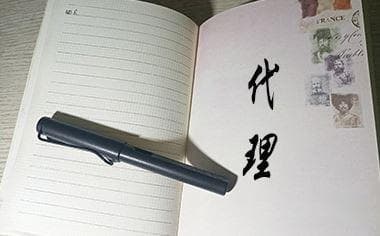 代
理
FRANCE